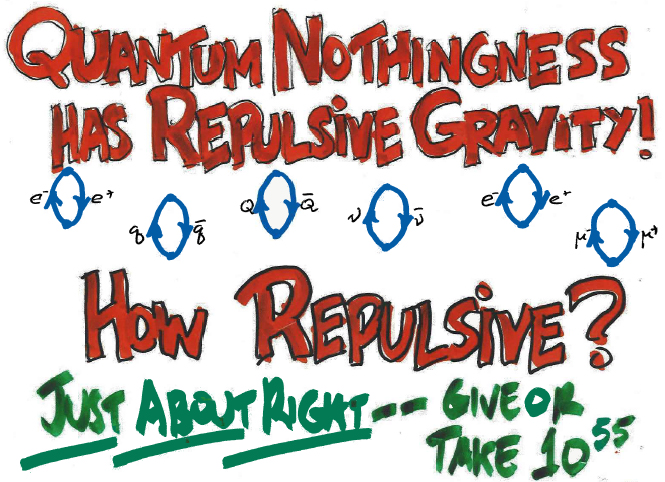 QUANTUM NOTHINGNESS
HAS REPULSIVE GRAVITY!
e⁻ e⁺ q q̄ Q Q̄ ν ν̄ e⁻ e⁺ μ⁻ μ⁺
HOW REPULSIVE?
JUST ABOUT RIGHT -- GIVE OR
TAKE 10⁵⁵